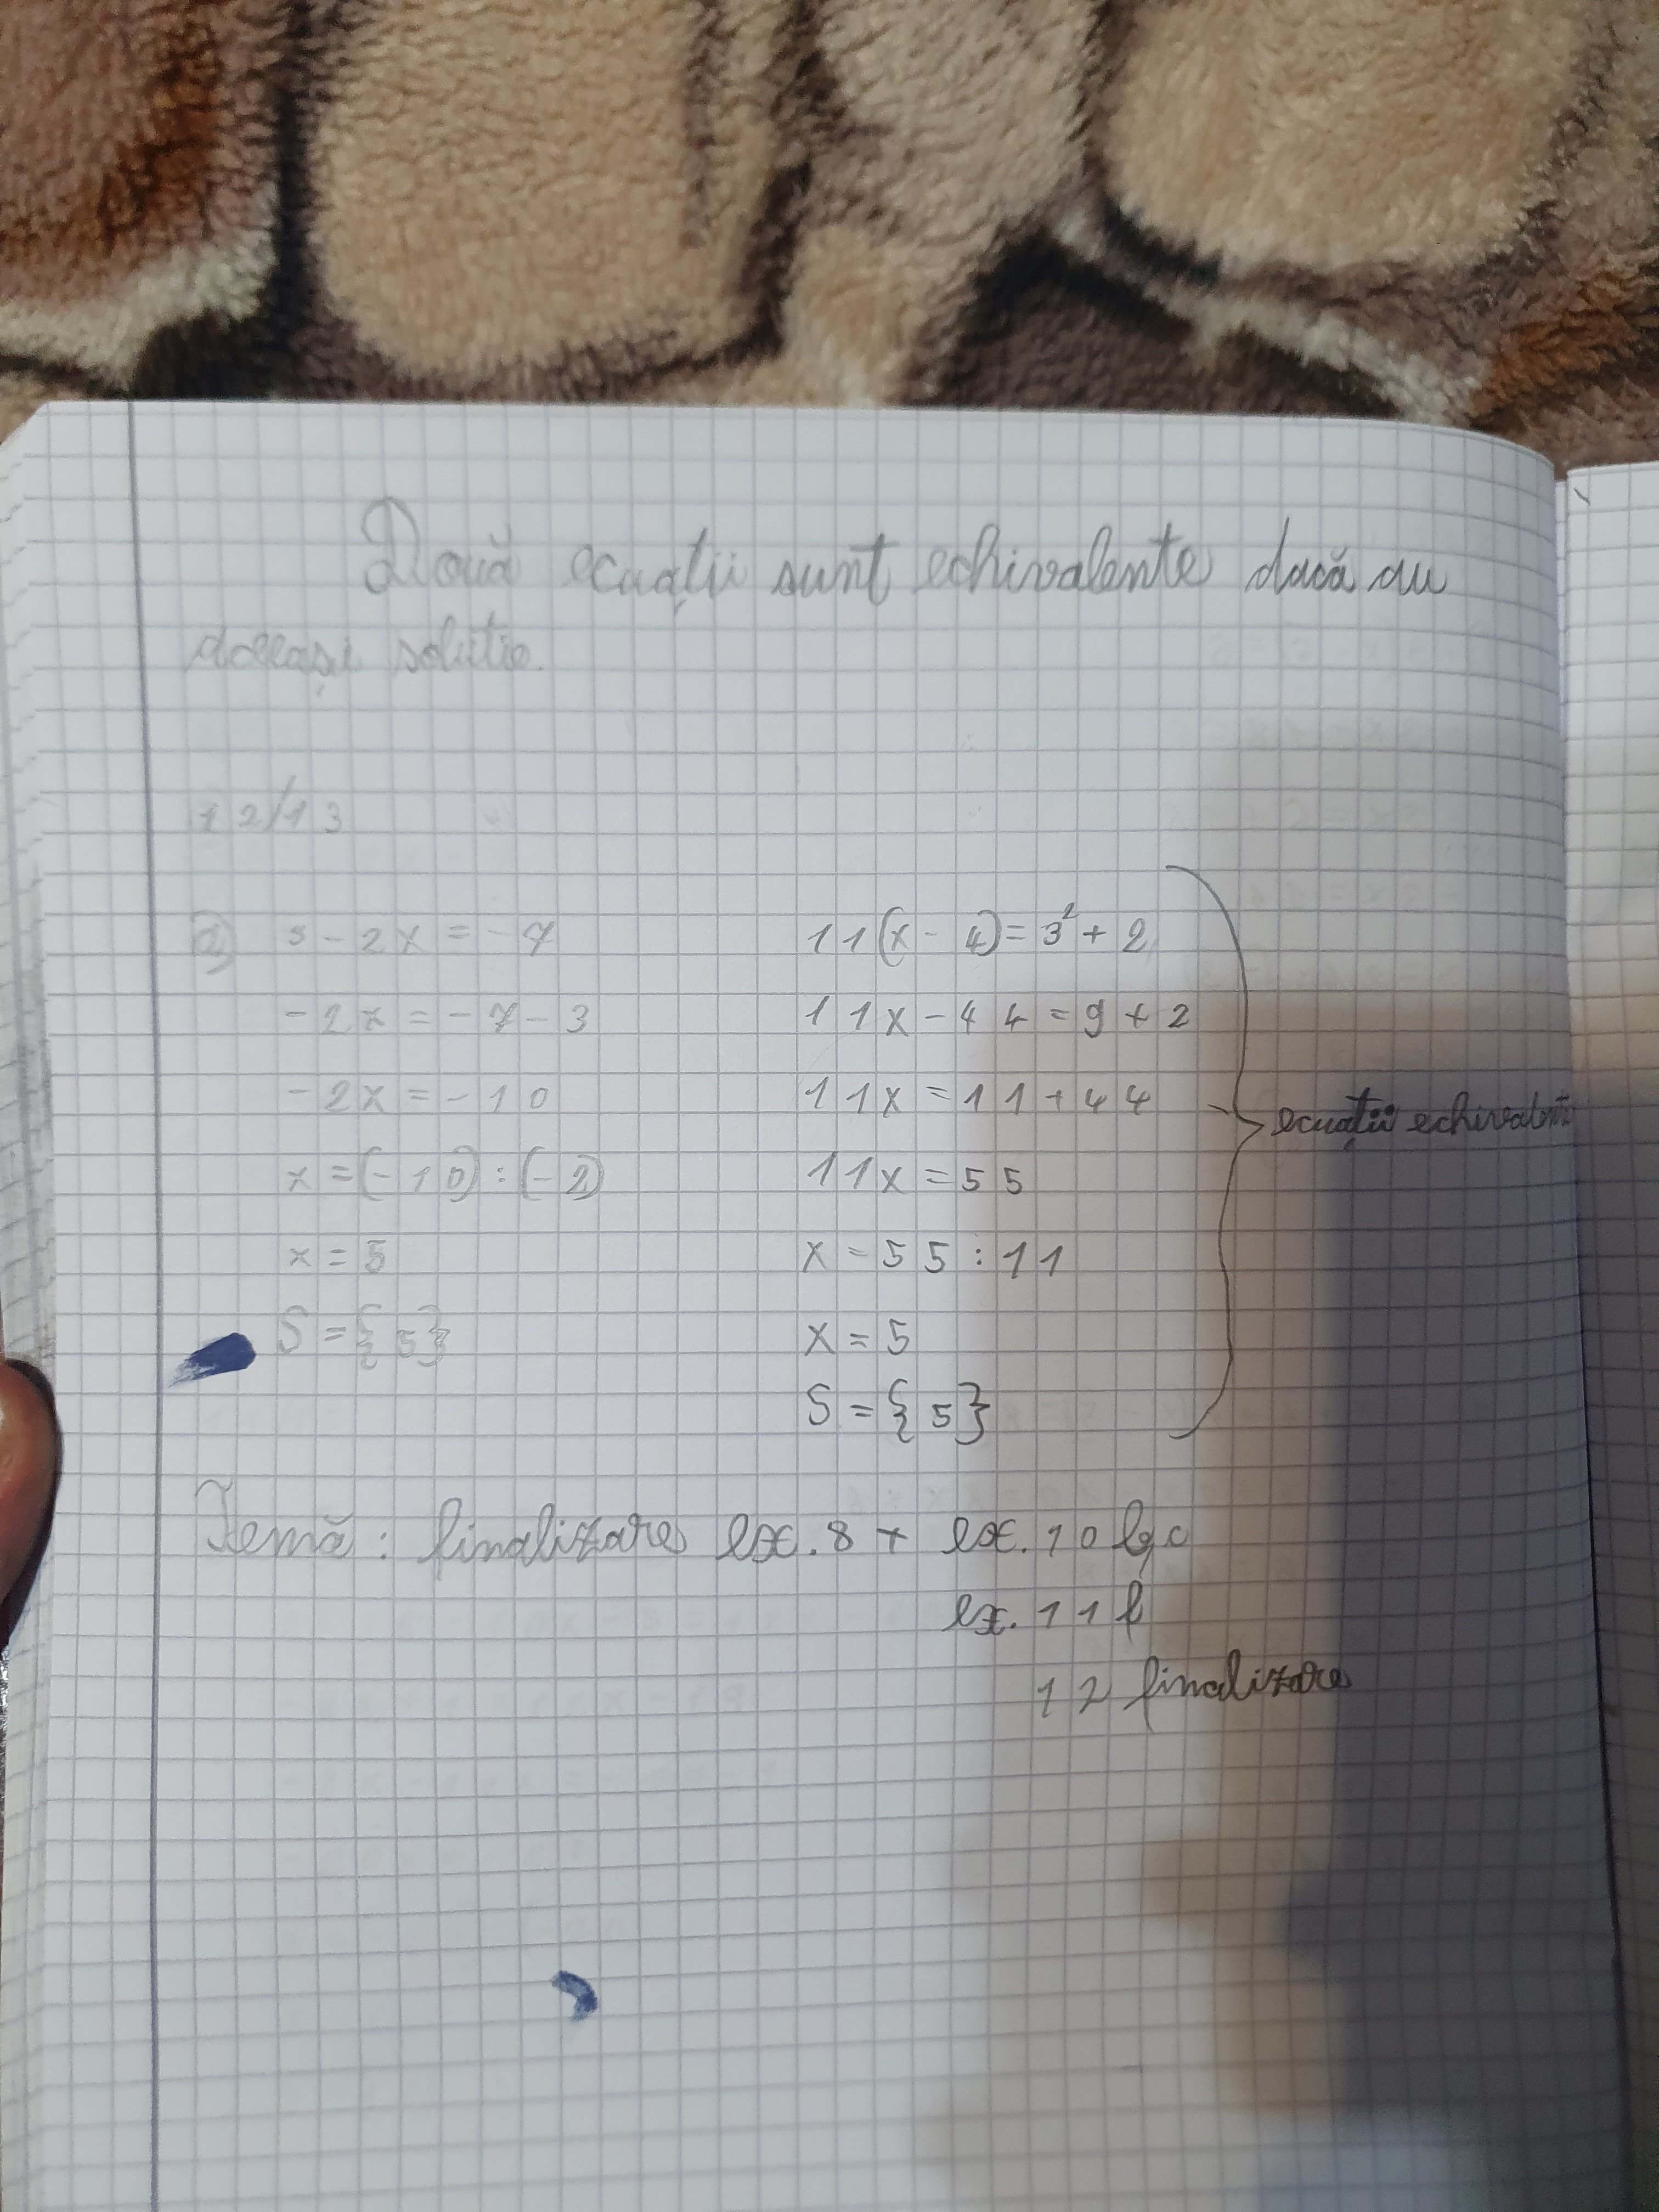 Două ecuații sunt echivalente dacă au
aceeași soluție.
12/13
a) 3 - 2x = -7
-2x = -7-3
-2x = -10
x = (-10) : (-2)
x = 5
S = {5}
11(x - 4) = 3² + 2
11x - 44 = 9 + 2
11x = 11 + 44
11x = 55
x = 55 : 11
x = 5
S = {5}
ecuații echivalente
Temă: finalizare ex. 8 + ex. 10 b,c
ex. 11 b
12 finalizare